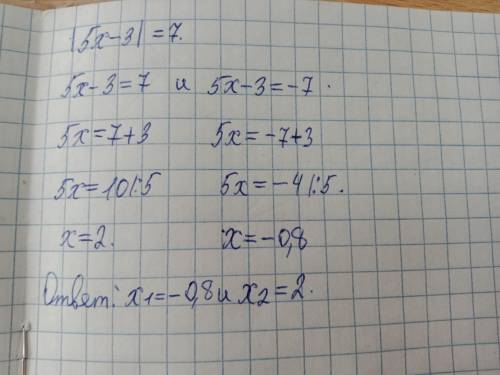 |5x-3|=7.
5x-3=7 и 5x-3=-7.
5x=7+3 5x=-7+3
5x=10|:5 5x=-4|:5.
x=2. x=-0,8
Ответ: x1=-0,8 и x2=2.